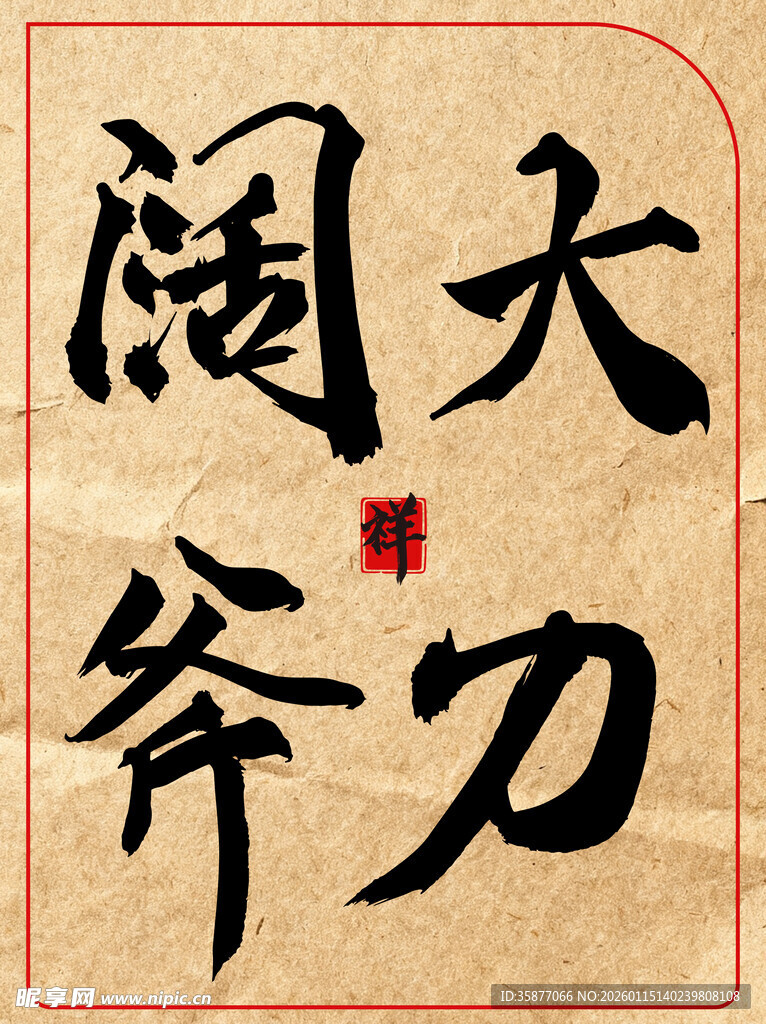 大刀
阔斧
祥
昵享网 www.nipic.cn
ID:35877066 NO:20260115140239808108